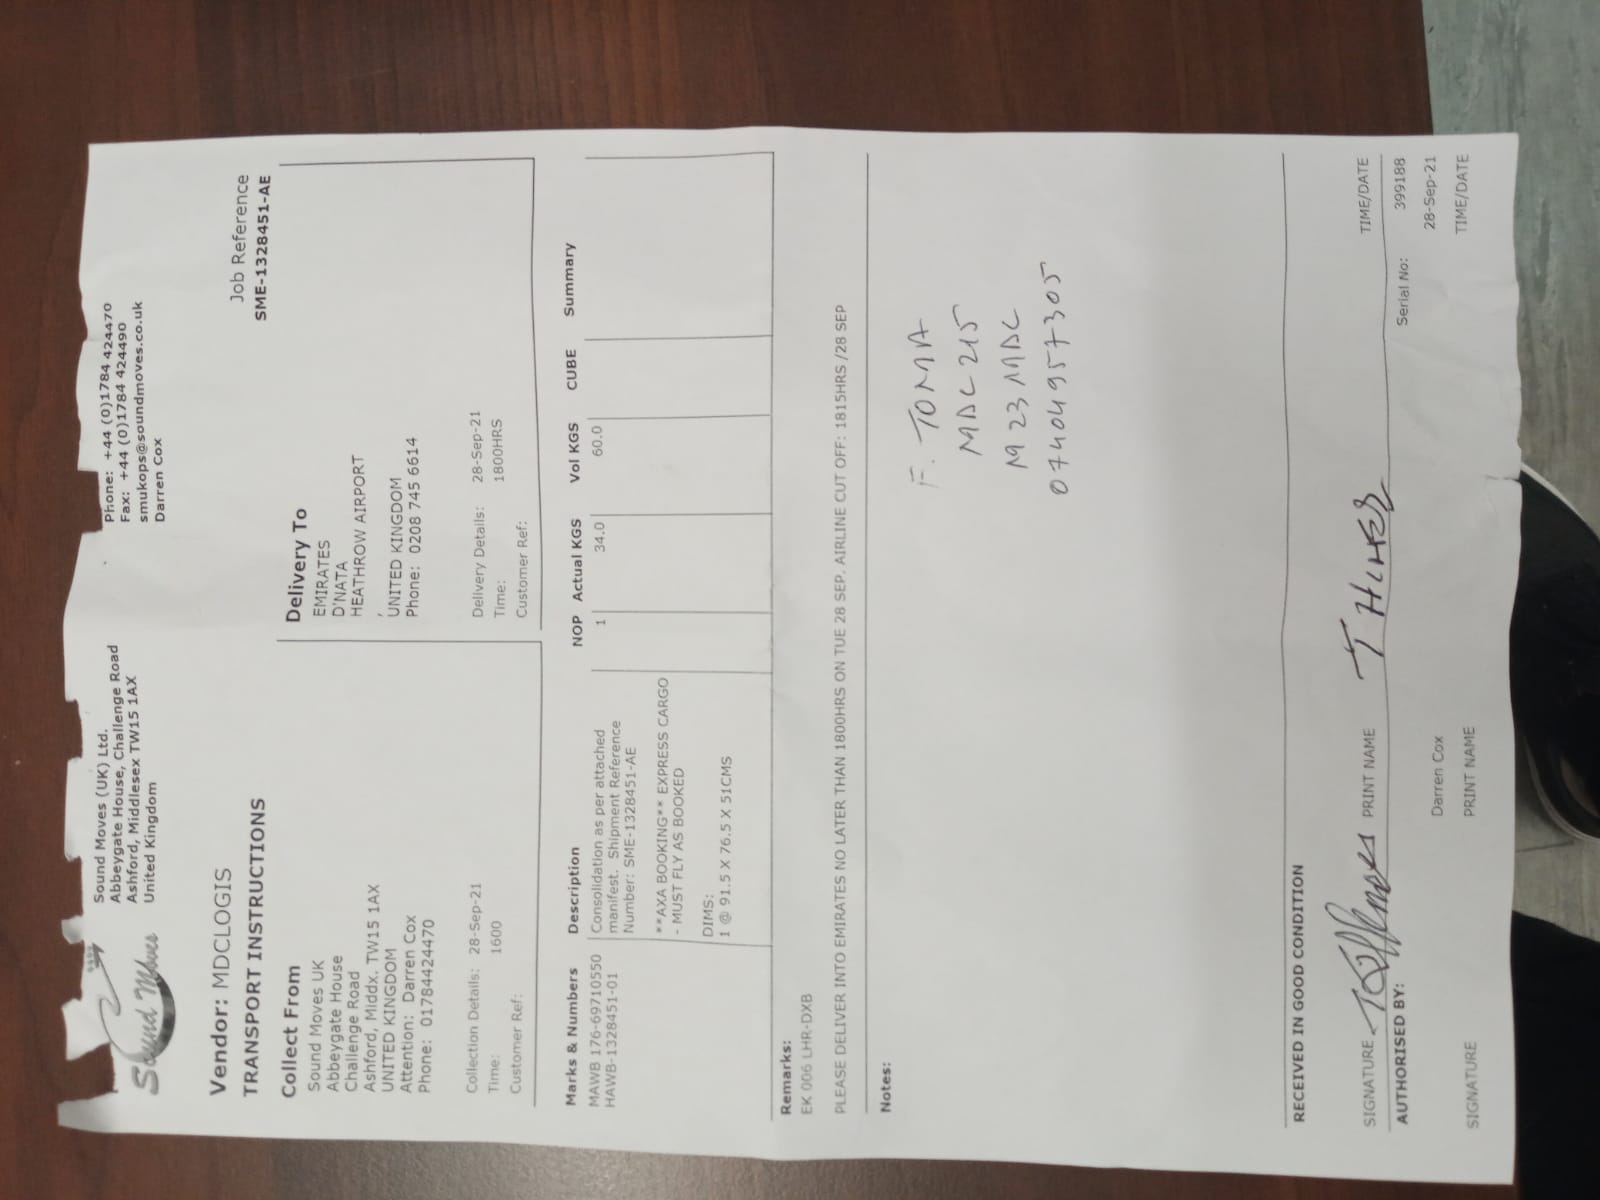 Sound Moves
Sound Moves (UK) Ltd.
Abbeygate House, Challenge Road
Ashford, Middlesex TW15 1AX
United Kingdom
Phone: +44 (0)1784 424470
Fax: +44 (0)1784 424490
smukops@soundmoves.co.uk
Darren Cox
Vendor: MDCLOGIS
TRANSPORT INSTRUCTIONS
Job Reference
SME-1328451-AE
Collect From
Sound Moves UK
Abbeygate House
Challenge Road
Ashford, Middx. TW15 1AX
UNITED KINGDOM
Attention: Darren Cox
Phone: 01784424470
Collection Details: 28-Sep-21
Time: 1600
Customer Ref:
Delivery To
EMIRATES
D'NATA
HEATHROW AIRPORT
,
UNITED KINGDOM
Phone: 0208 745 6614
Delivery Details: 28-Sep-21
Time: 1800HRS
Customer Ref:
Marks & Numbers Description NOP Actual KGS Vol KGS CUBE Summary
MAWB 176-69710550
HAWB-1328451-01
Consolidation as per attached
manifest. Shipment Reference
Number: SME-1328451-AE
**AXA BOOKING** EXPRESS CARGO
- MUST FLY AS BOOKED
DIMS:
1 @ 91.5 X 76.5 X 51CMS
1 34.0 60.0
Remarks:
EK 006 LHR-DXB
PLEASE DELIVER INTO EMIRATES NO LATER THAN 1800HRS ON TUE 28 SEP. AIRLINE CUT OFF: 1815HRS /28 SEP
Notes:
F. TOMA
MDC 215
M23 MDC
07404957305
RECEIVED IN GOOD CONDITION
SIGNATURE PRINT NAME TIME/DATE
AUTHORISED BY: Serial No: 399188
Darren Cox 28-Sep-21
SIGNATURE PRINT NAME TIME/DATE